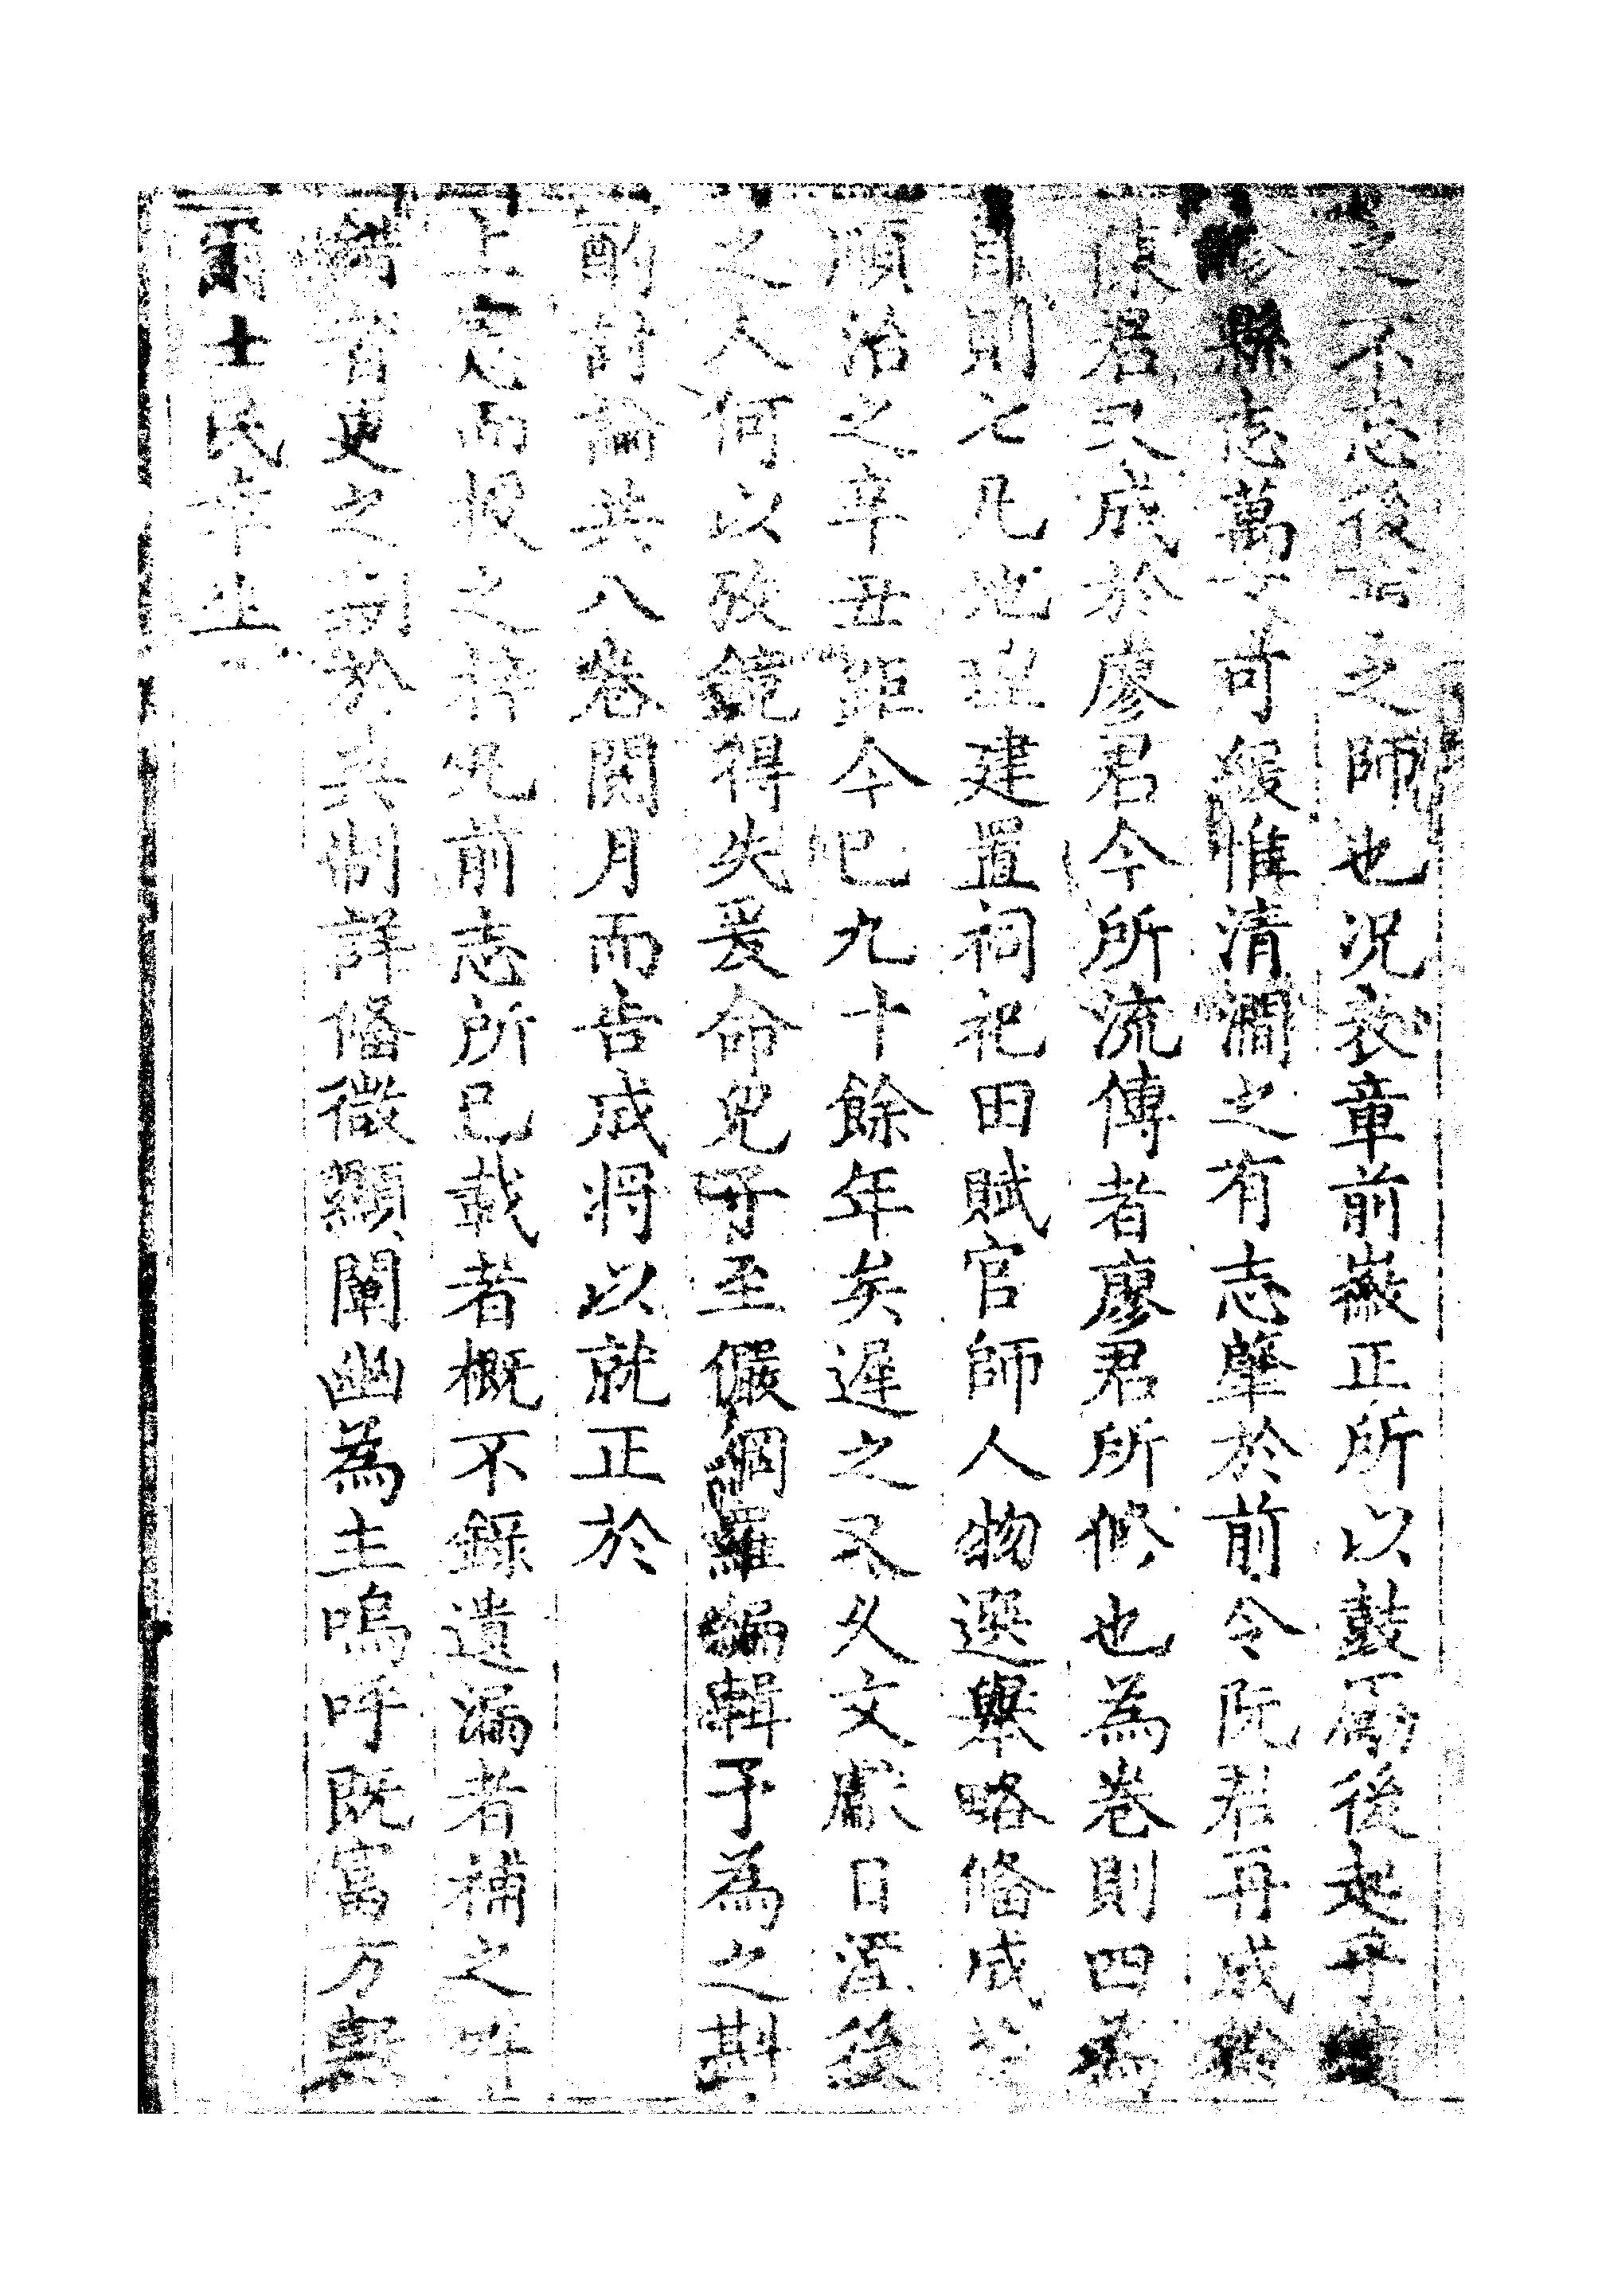 之不忘後事之師也况表章前徽正所以鼓勵後起乎續
修縣志萬不可緩惟清澗之有志肇於前令阮君再成於
陳君又成於廖君今所流傳者廖君所修也為卷則四為
目則七凡地理建置祠祀田賦官師人物選舉略備成於
順治之辛丑距今已九十餘年矣遲之又久文獻日湮後
之人何以攷鏡得失爰命兒子至儼網羅編輯予為之斟
酌討論共八卷閱月而告成將以就正於
上憲而授之梓凡前志所已載者概不錄遺漏者補之舛
者更之於其制詳備徵顯闡幽為主嗚呼既富方穀
爾士民幸生